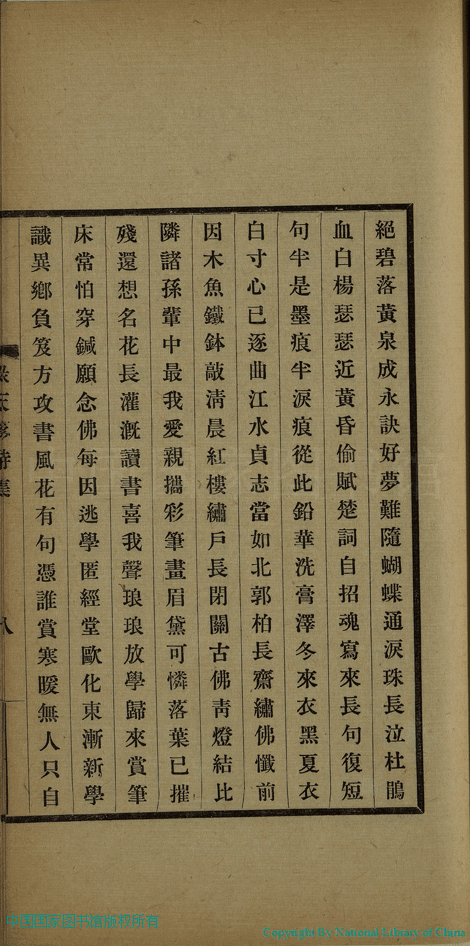 絕碧落黃泉成永訣好夢難隨蝴蝶通淚珠長泣杜鵑
血白楊瑟瑟近黃昏偷賦楚詞自招魂寫來長句復短
句半是墨痕半淚痕從此鉛華洗膏澤冬來衣黑夏衣
白寸心已逐曲江水貞志當如北郭柏長齋繡佛懺前
因木魚鐵鉢敲淸晨紅樓繡戶長閉關古佛靑燈結比
隣諸孫輩中最我愛親攜彩筆畫眉黛可憐落葉已摧
殘還想名花長灌漑讀書喜我聲琅琅放學歸來賞筆
床常怕穿鍼願念佛每因逃學匿經堂歐化東漸新學
識異鄉負笈方攻書風花有句憑誰賞寒暖無人只自
八
Copyright By National Library of China